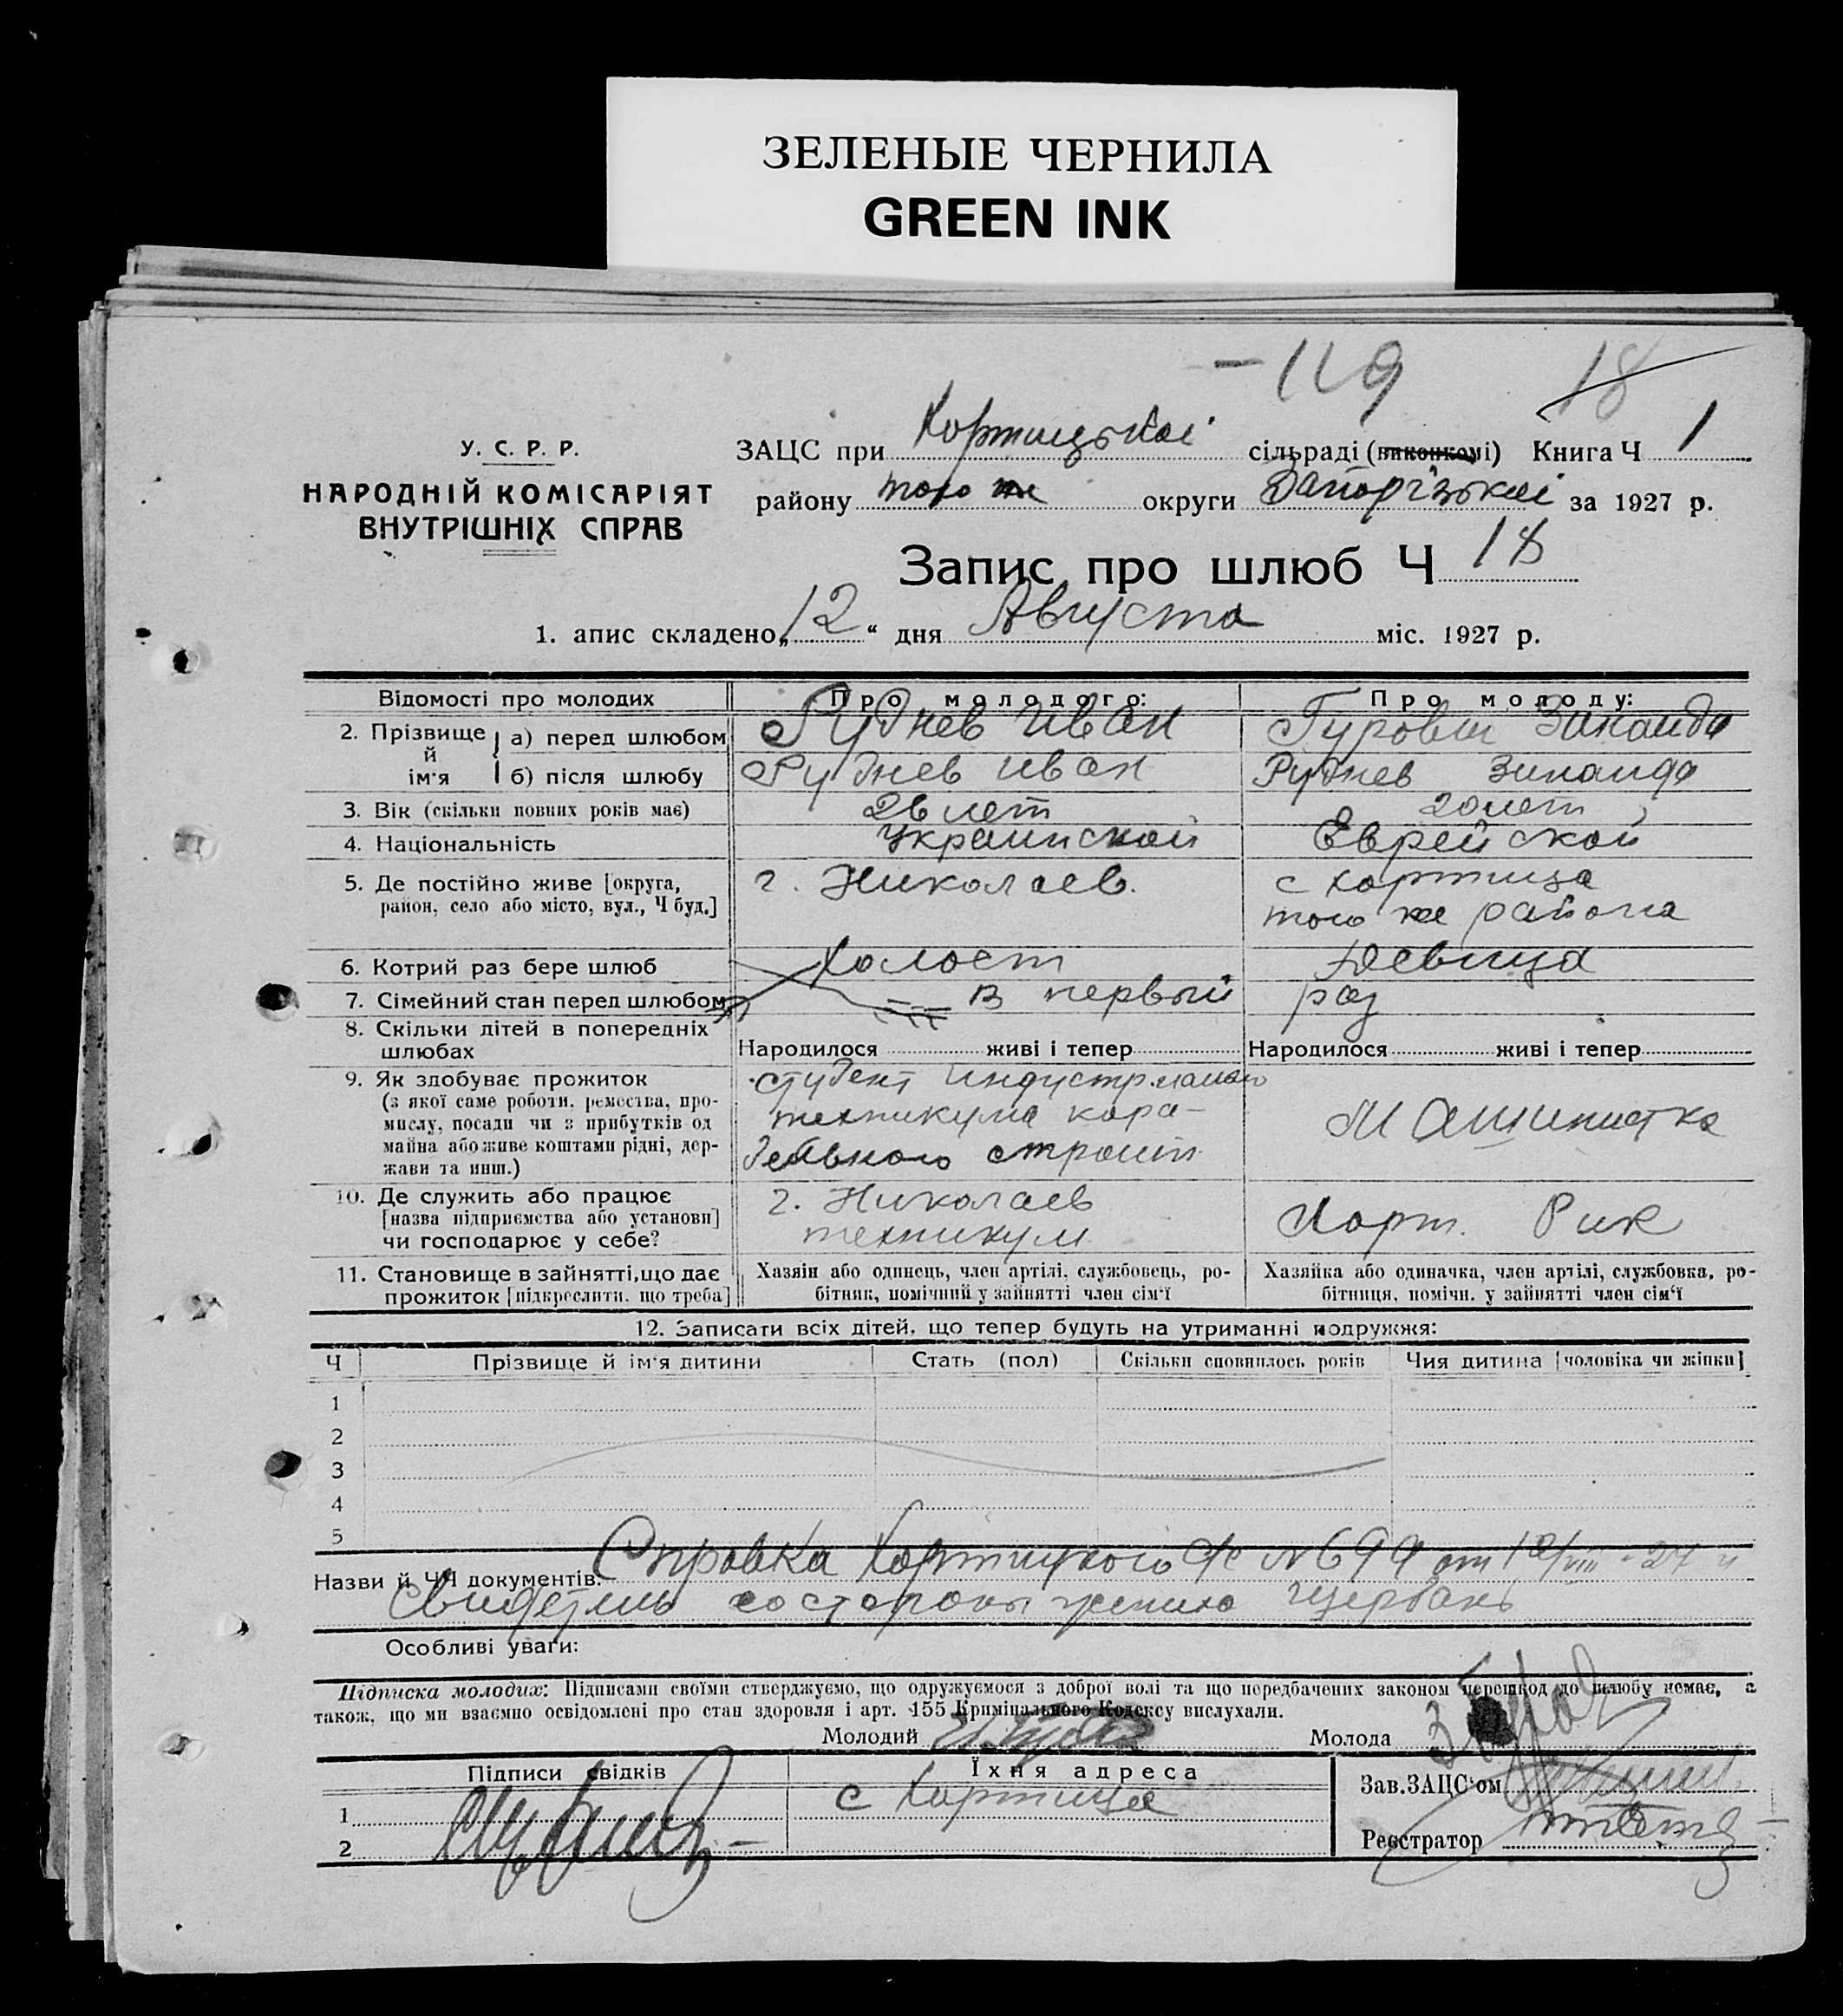 ЗЕЛЕНЫЕ ЧЕРНИЛА
GREEN INK
18
У. С. Р. Р.
НАРОДНІЙ КОМІСАРІЯТ
ВНУТРІШНІХ СПРАВ
ЗАЦС при Хортицькоі сільраді (виконкомі) Книга Ч 1
району того же округи Запорізькоі за 1927 р.
Запис про шлюб Ч 18
1. апис складено „12“ дня Августа міс. 1927 р.
Відомості про молодих Про молодого: Про молоду:
2. Прізвище й ім'я а) перед шлюбом Руднев Иван Зинаида
б) після шлюбу Руднев Иван Руднев Зинаида
3. Вік (скільки повних років має) 26 лет 20 лет
4. Національність Украинской Еврейской
5. Де постійно живе [округа, район, село або місто, вул., Ч буд.] г. Николаев. с Хортица
того же района
6. Котрий раз бере шлюб Холост Девица
7. Сімейний стан перед шлюбом в первый раз
8. Скільки дітей в попередніх
шлюбах Народилося живі і тепер Народилося живі і тепер
9. Як здобуває прожиток студент
(з якої саме роботи, ремества, про- техникума кора-
мислу, посади чи з прибутків од Машинистка
майна або живе коштами рідні, дер- строит
жави та инш.)
10. Де служить або працює г. Николаев
[назва підприємства або установи] техникум Хорт. Рик
чи господарює у себе?
11. Становище в зайнятті, що дає Хазяїн або одинець, член артілі, службовець, ро- Хазяйка або одиначка, член артілі, службовка, ро-
прожиток [підкреслити, що треба] бітник, помічний у зайнятті член сім'ї бітниця, помічн. у зайнятті член сім'ї
12. Записати всіх дітей, що тепер будуть на утриманні подружжя:
Ч Прізвище й ім'я дитини Стать (пол) Скільки сповнилось років Чия дитина [чоловіка чи жінки]
1
2
3
4
5
Назви й ЧЧ документів: Справка Хортицкого с/с № 699 от
Свидетель со стороны Щербань
Особливі уваги:
Підписка молодих: Підписами своїми стверджуємо, що одружуємося з доброї волі та що передбачених законом перешкод до шлюбу немає, а
також, що ми взаємно освідомлені про стан здоровля і арт. 155 Кримінального Кодексу вислухали.
Молодий Молода
Підписи свідків Їхня адреса Зав.ЗАЦС'ом
1 с Хортица
2 Реєстратор